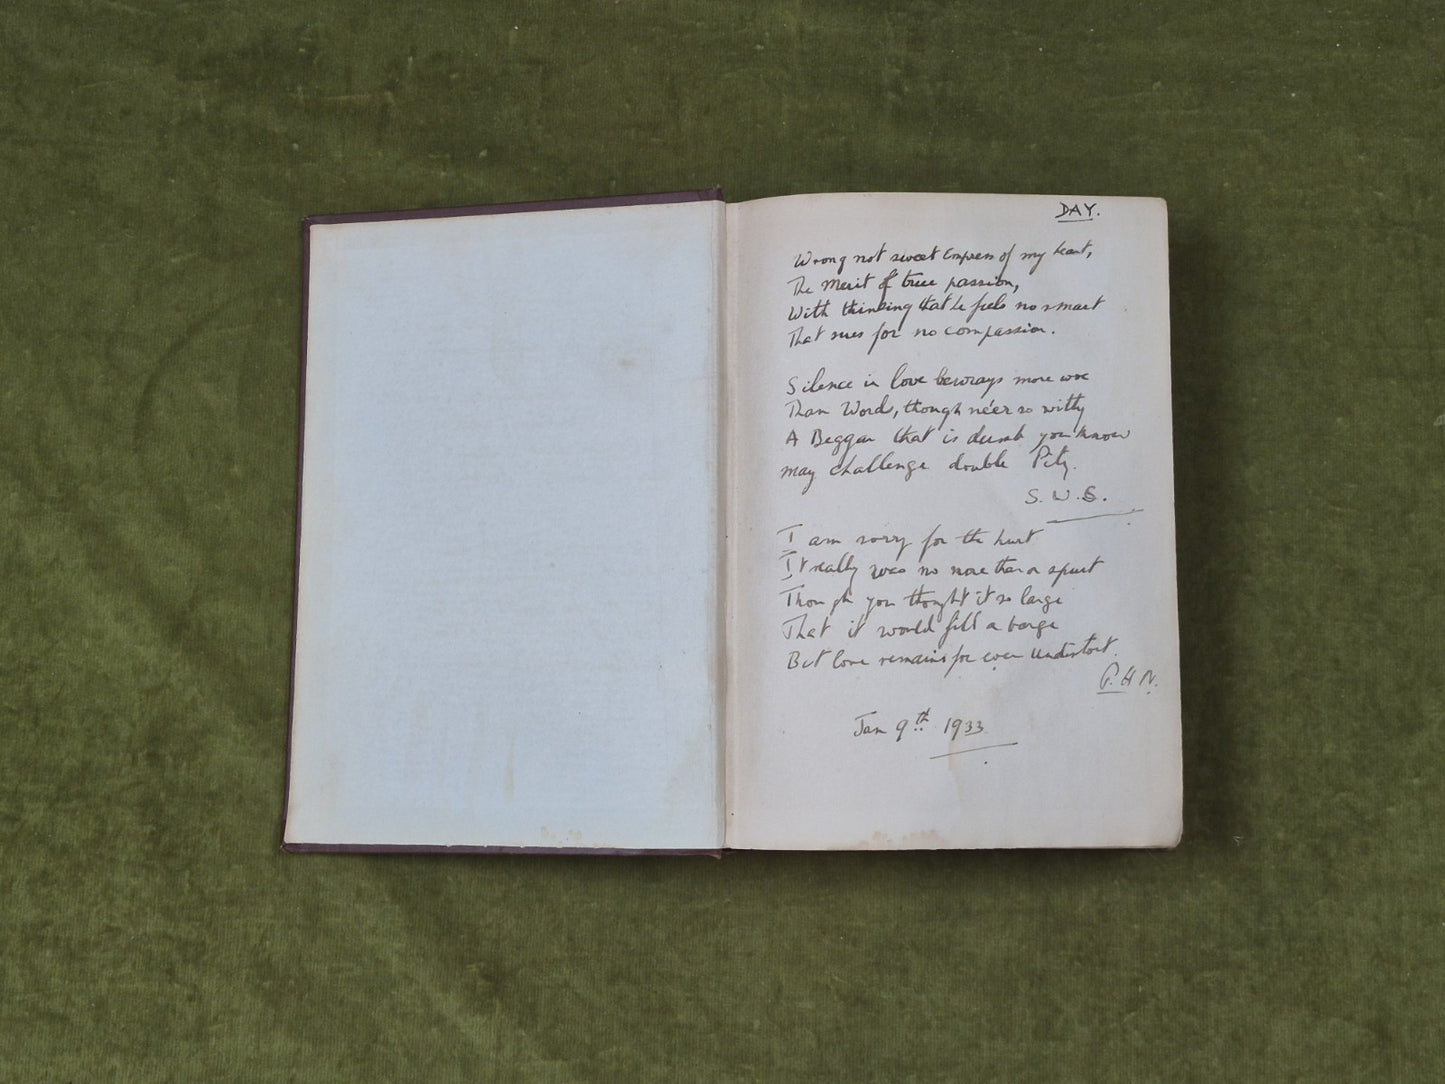 DAY.
Wrong not sweet Empress of my heart,
The Merit of true passion,
With thinking that he feels no smart
That sues for no compassion.
Silence in love bewrays more woe
Than Words, though ne'er so witty
A Beggar that is dumb you know
may challenge double Pity.
S. W. S.
I am sorry for the hurt
It really was no more than a spurt
Though you thought it so large
That it would fill a barge
But love remains for ever
P. H N.
Jan 9th 1933